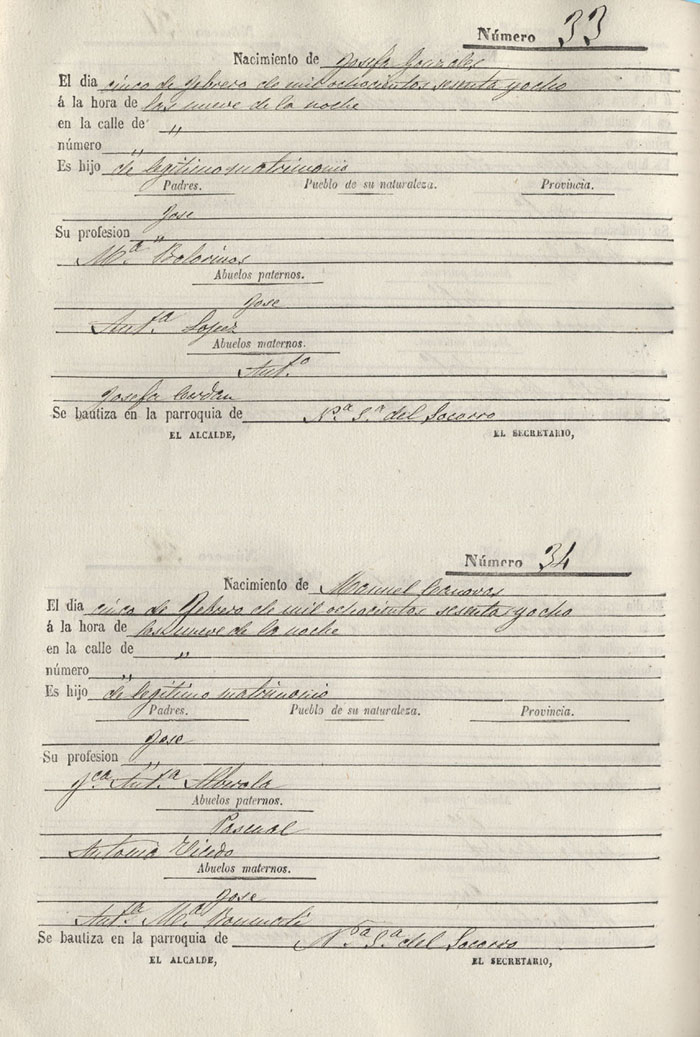 Número 33
Nacimiento de Josefa Gonzales
El dia cinco de Febrero de mil ochocientos sesenta y ocho
á la hora de las nueve de la noche
en la calle de „
número „
Es hijo de legitimo matrimonio
Padres. Pueblo de su naturaleza. Provincia.
Jose
Su profesion „
Mª Belorinos
Abuelos paternos.
Jose
Antª Lopez
Abuelos maternos.
Antº
Josefa Cerdan
Se bautiza en la parroquia de Nª Sª del Socorro
EL ALCALDE, EL SECRETARIO,
Número 34
Nacimiento de Manuel Canovas
El dia cinco de Febrero de mil ochocientos sesenta y ocho
á la hora de las nueve de la noche
en la calle de „
número „
Es hijo de legitimo matrimonio
Padres. Pueblo de su naturaleza. Provincia.
Jose
Su profesion „
Fca Antª Alberola
Abuelos paternos.
Pascual
Antonia
Abuelos maternos.
Jose
Antª Mª
Se bautiza en la parroquia de Nª Sª del Socorro
EL ALCALDE, EL SECRETARIO,